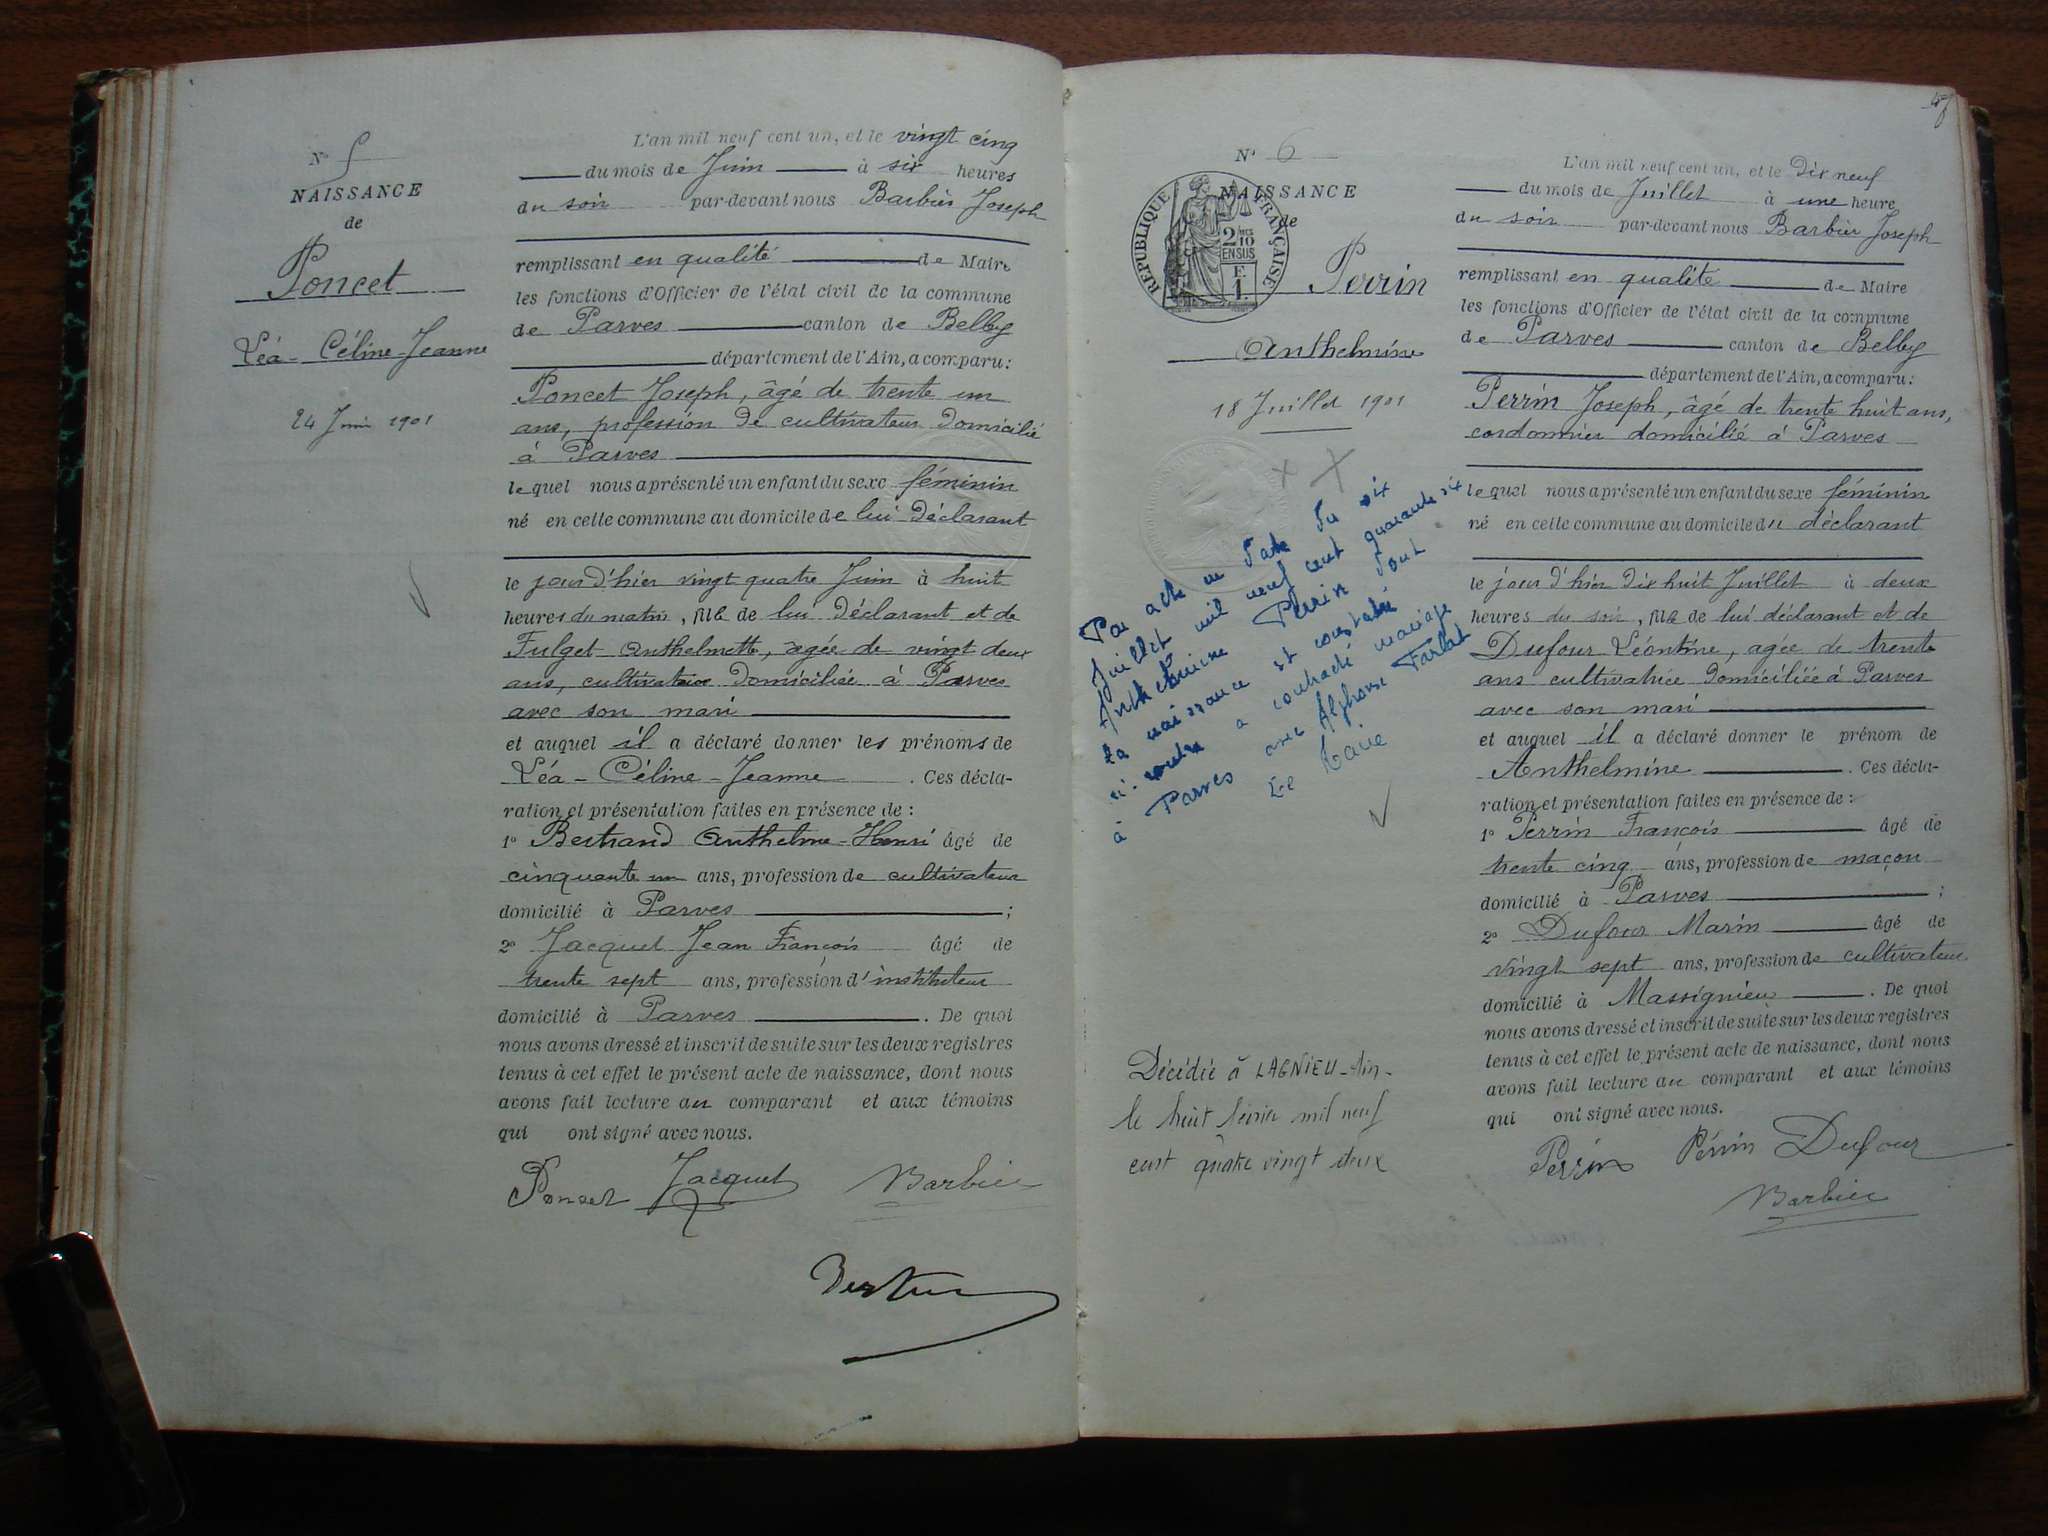 N° 5
NAISSANCE
de
Poncet
Léa - Céline - Jeanne
24 Juin 1901
L'an mil neuf cent un, et le vingt cinq
du mois de Juin à six heures
du soir par-devant nous Barbier Joseph
remplissant en qualité de Maire
les fonctions d'Officier de l'état civil de la commune
de Parves canton de Belley
département de l'Ain, a comparu:
Poncet Joseph, âgé de trente un
ans, profession de cultivateur domicilié
à Parves
lequel nous a présenté un enfant du sexe féminin
né en cette commune au domicile de lui déclarant
le jour d'hier vingt quatre Juin à huit
heures du matin, fille de lui déclarant et de
Fulget Anthelmette, agée de vingt deux
ans, cultivatrice domiciliée à Parves
avec son mari
et auquel il a déclaré donner les prénoms de
Léa - Céline - Jeanne. Ces décla-
ration et présentation faites en présence de :
1° Bertrand Anthelme - Henri âgé de
cinquante un ans, profession de cultivateur
domicilié à Parves ;
2° Jacquet Jean François âgé de
trente sept ans, profession d'instituteur
domicilié à Parves. De quoi
nous avons dressé et inscrit de suite sur les deux registres
tenus à cet effet le présent acte de naissance, dont nous
avons fait lecture au comparant et aux témoins
qui ont signé avec nous.
Poncet Jacquet Barbier
N° 6
NAISSANCE
de
RÉPUBLIQUE FRANÇAISE
2/10
EN SUS
Perrin
Anthelmine
18 Juillet 1901
Par acte en date du six
Juillet mil neuf cent quarante six
Anthelmine Perrin dont
la naissance est constatée
ci-contre a contracté mariage
à Parves avec Alphonse
Le Maire
Décédée à LAGNIEU - Ain -
le huit février mil neuf
cent quatre vingt deux
L'an mil neuf cent un, et le dix neuf
du mois de Juillet à une heure
du soir par-devant nous Barbier Joseph
remplissant en qualité de Maire
les fonctions d'Officier de l'état civil de la commune
de Parves canton de Belley
département de l'Ain, a comparu:
Perrin Joseph, âgé de trente huit ans,
cordonnier domicilié à Parves
lequel nous a présenté un enfant du sexe féminin
né en cette commune au domicile du déclarant
le jour d'hier dix huit Juillet à deux
heures du soir, fille de lui déclarant et de
Dufour Léontine, agée de trente
ans cultivatrice domiciliée à Parves
avec son mari
et auquel il a déclaré donner le prénom de
Anthelmine. Ces décla-
ration et présentation faites en présence de :
1° Perrin François âgé de
trente cinq ans, profession de maçon
domicilié à Parves ;
2° Dufour Marin âgé de
vingt sept ans, profession de cultivateur
domicilié à Massignieu. De quoi
nous avons dressé et inscrit de suite sur les deux registres
tenus à cet effet le présent acte de naissance, dont nous
avons fait lecture au comparant et aux témoins
qui ont signé avec nous.
Perrin Périn Dufour
Barbier